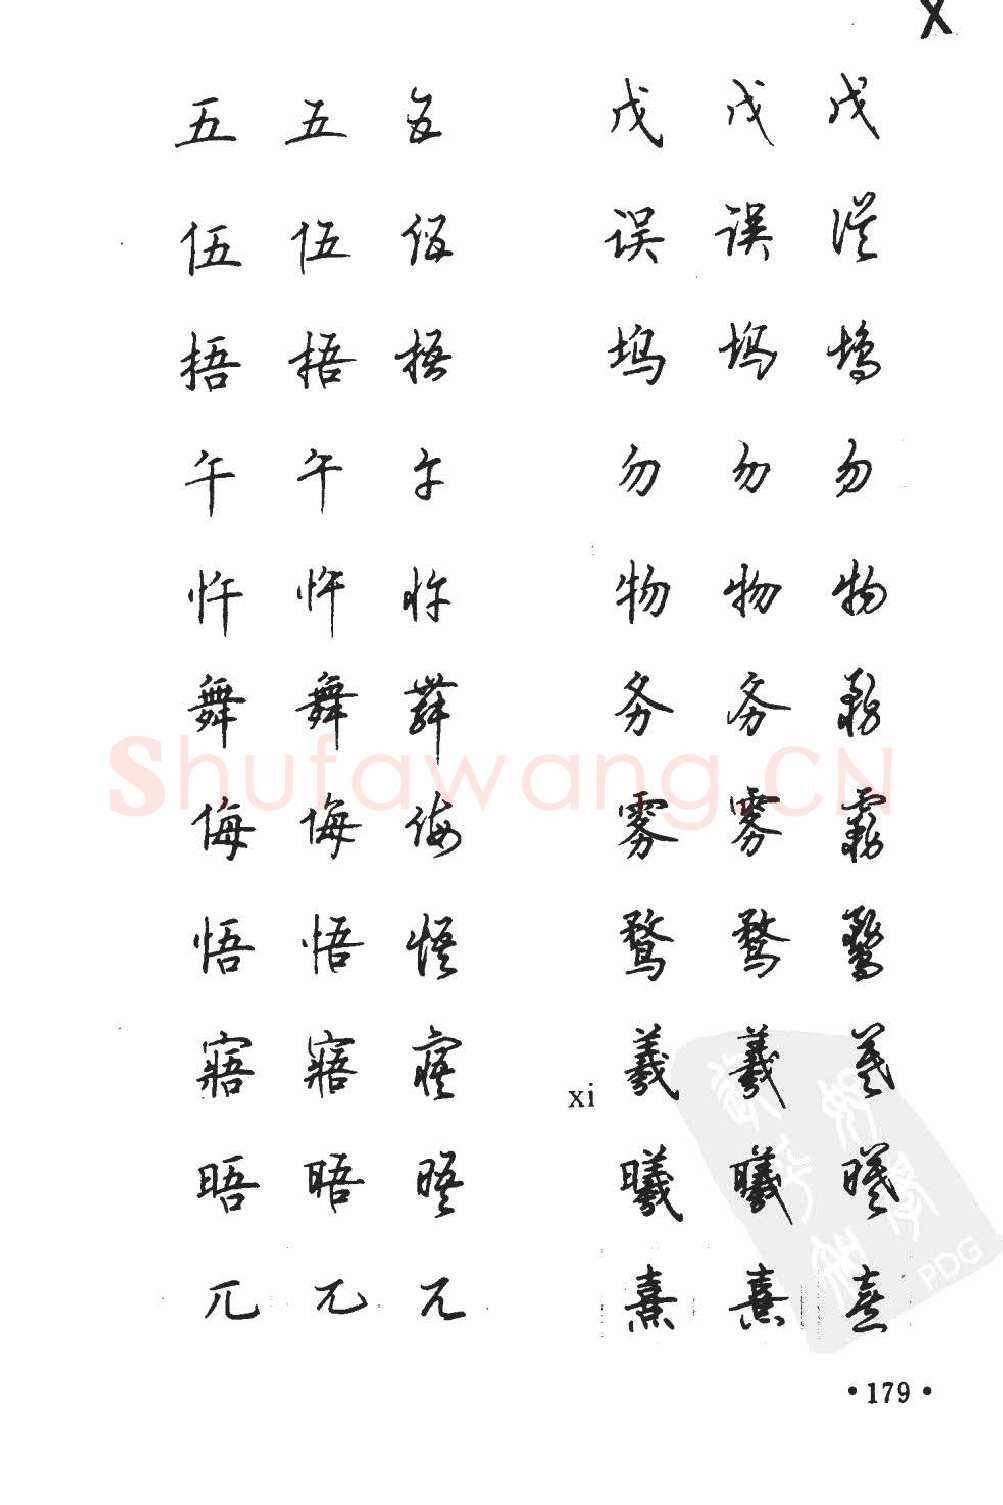 X
五 五 五 戊 戊 戊
伍 伍 伍 误 误 误
捂 捂 捂 坞 坞 坞
午 午 午 勿 勿 勿
忤 忤 忤 物 物 物
舞 舞 舞 务 务 務
侮 侮 侮 雾 雾 霧
悟 悟 悟 鹜 鹜 鶩
寤 寤 寤 xi 羲 羲 羲
晤 晤 晤 曦 曦 曦
兀 兀 兀 熹 熹 熹
Shufawang.CN
PDG
·179·